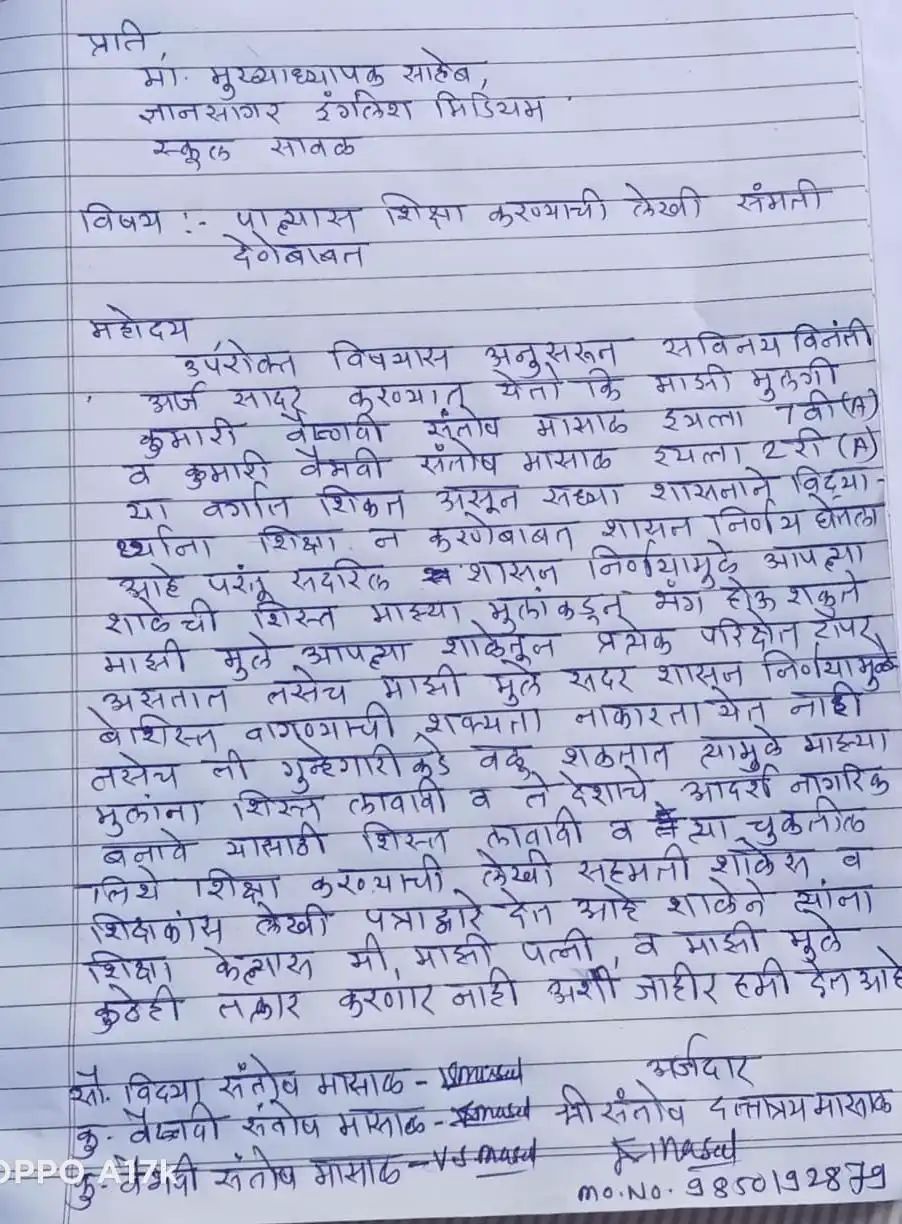 प्रति,
मा. मुख्याध्यापक साहेब,
ज्ञानसागर इंग्लिश मिडियम
स्कूल सावळ
विषय :- पाल्यास शिक्षा करण्याची लेखी संमती
देणेबाबत
महोदय
उपरोक्त विषयास अनुसरून सविनय विनंती
अर्ज सादर करण्यात येतो कि माझी मुलगी
कुमारी वैष्णवी संतोष मासाळ इयत्ता 7वी (A)
व कुमारी वैभवी संतोष मासाळ इयत्ता 2री (A)
या वर्गात शिकत असून सध्या शासनाने विद्या-
र्थ्यांना शिक्षा न करणेबाबत शासन निर्णय घेतला
आहे परंतू सदरिल शासन निर्णयामुळे आपल्या
शाळेची शिस्त माझ्या मुलांकडून भंग होऊ शकते
माझी मुले आपल्या शाळेतून प्रत्येक परिक्षेत टॉपर
असतात तसेच माझी मुले सदर शासन निर्णयामुळे
बेशिस्त वागण्याची शक्यता नाकारता येत नाही
तसेच ती गुन्हेगारीकडे वळू शकतात त्यामुळे माझ्या
मुलांना शिस्त लावावी व ते देशाचे आदर्श नागरिक
बनावे यासाठी शिस्त लावावी व त्या चुकतील
तिथे शिक्षा करण्याची लेखी सहमती शाळेस व
शिक्षकांस लेखी पत्राद्वारे देत आहे शाळेने त्यांना
शिक्षा केल्यास मी, माझी पत्नी, व माझी मुले
कुठेही तक्रार करणार नाही अशी जाहीर हमी देत आहे
अर्जदार
सौ. विद्या संतोष मासाळ - Vsmasal
कु. वैष्णवी संतोष मासाळ - Vsmasal श्री संतोष दत्तात्रय मासाळ
कु. वैभवी संतोष मासाळ - V.S masal
mo.No. 9850192879
OPPO A17k